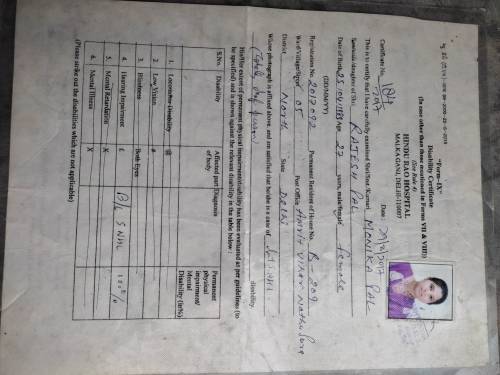 "Form-IX"
Disability Certificate
(In case other than those mentioned in Forms VII & VIII)
(See Rule 4)
HINDU RAO HOSPITAL
MALKA GANJ, DELHI-110007
Certificate No. Date:
This is to certify that I have carefully examined Shri/Smt./Kumari MONIKA PAL
son/wife/daughter of Shri RAJESH PAL
Date of Birth Age 27 years, male/female female
(DD/MM/YY)
Registration No. 2017092 Permanent Resident of House No. B-209
Ward/Village/Street 05 Post Office
District North State Delhi
Whose photograph is affixed above, and am satisfied that he/she is a case of disability.
His/Her extent of permanent physical impairment/disability has been evaluated as per guidelines (to
be specified) and is shown against the relevant disability in the table below:
S.No. Disability Affected part of body Diagnosis Permanent physical impairment/ Mental Disability (in%)
1. Locomotor Disability @
2. Low Vision #
3. Blindness Both Eyes
4. Hearing Impairment £ B/L SNHL 100%
5. Mental Retardation X
6. Mental Illness X
(Please strike out the disabilities which are not applicable)